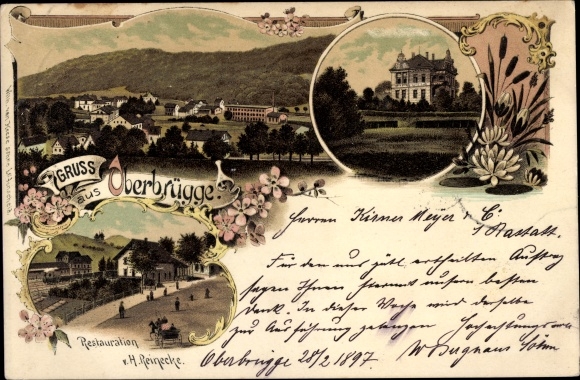 GRUSS
aus Oberbrügge
Herren Kirner Meyer & C.
Rastatt.
Für den uns gütl. ertheilten Auftrag
sagen Ihnen hiermit unsern besten
Dank. In dieser Weise wird derselbe
zur Ausführung gelangen Hochachtungsvoll
Oberbrügge 28/2 1897. W Berghaus Sohn
Restauration
v. H. Reinecke.